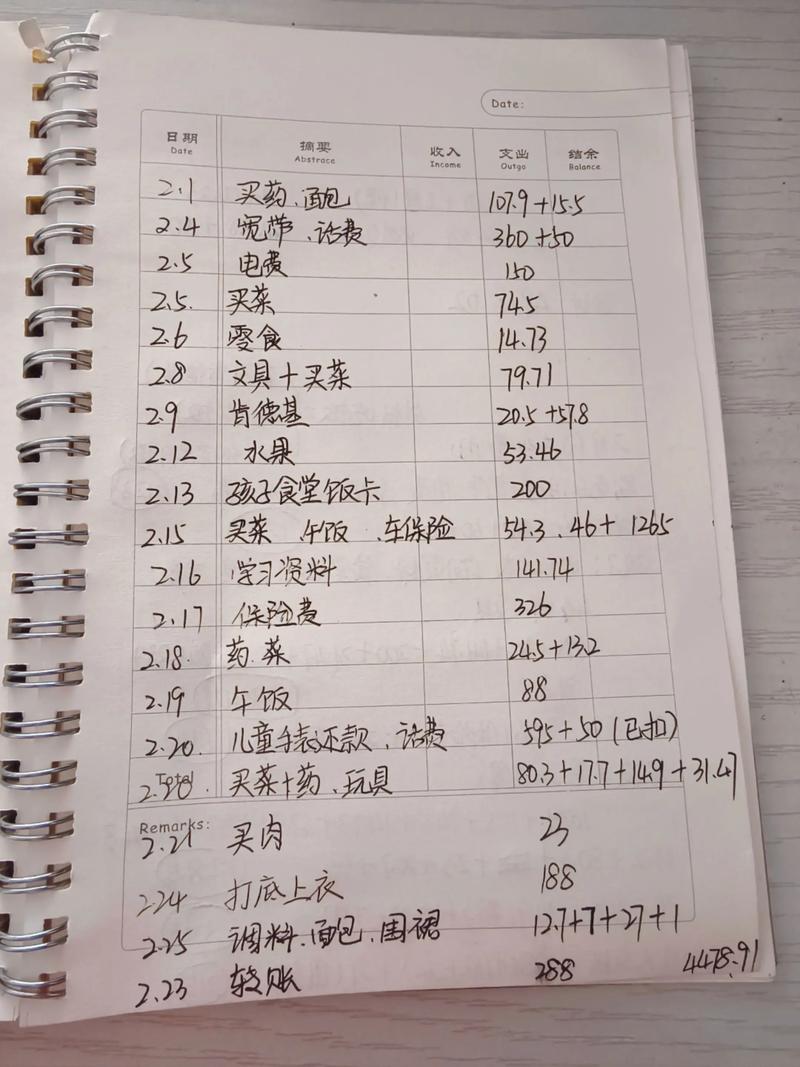 Date:
日期 摘要 收入 支出 结余
Date Abstrace Income Outgo Balance
2.1 买药、面包 107.9+15.5
2.4 宽带、话费 360+50
2.5 电费 150
2.5. 买菜 74.5
2.6 零食 14.73
2.8 文具+买菜 79.71
2.9 肯德基 20.5+57.8
2.12 水果 53.46
2.13 孩子食堂饭卡 200
2.15 买菜、午饭、车保险 54.3、46+1265
2.16 学习资料 141.74
2.17 保险费 326
2.18. 药.菜 24.5+13.2
2.19 午饭 88
2.20. 儿童手表还款、话费 595+50(已扣)
Total
2.20. 买菜+药、玩具 80.3+17.7+14.9+31.47
Remarks:
2.21 买肉 23
2.24 打底上衣 188
2.25 调料、面包、围裙 12.7+7+27+1
2.23 转账 288 4478.91